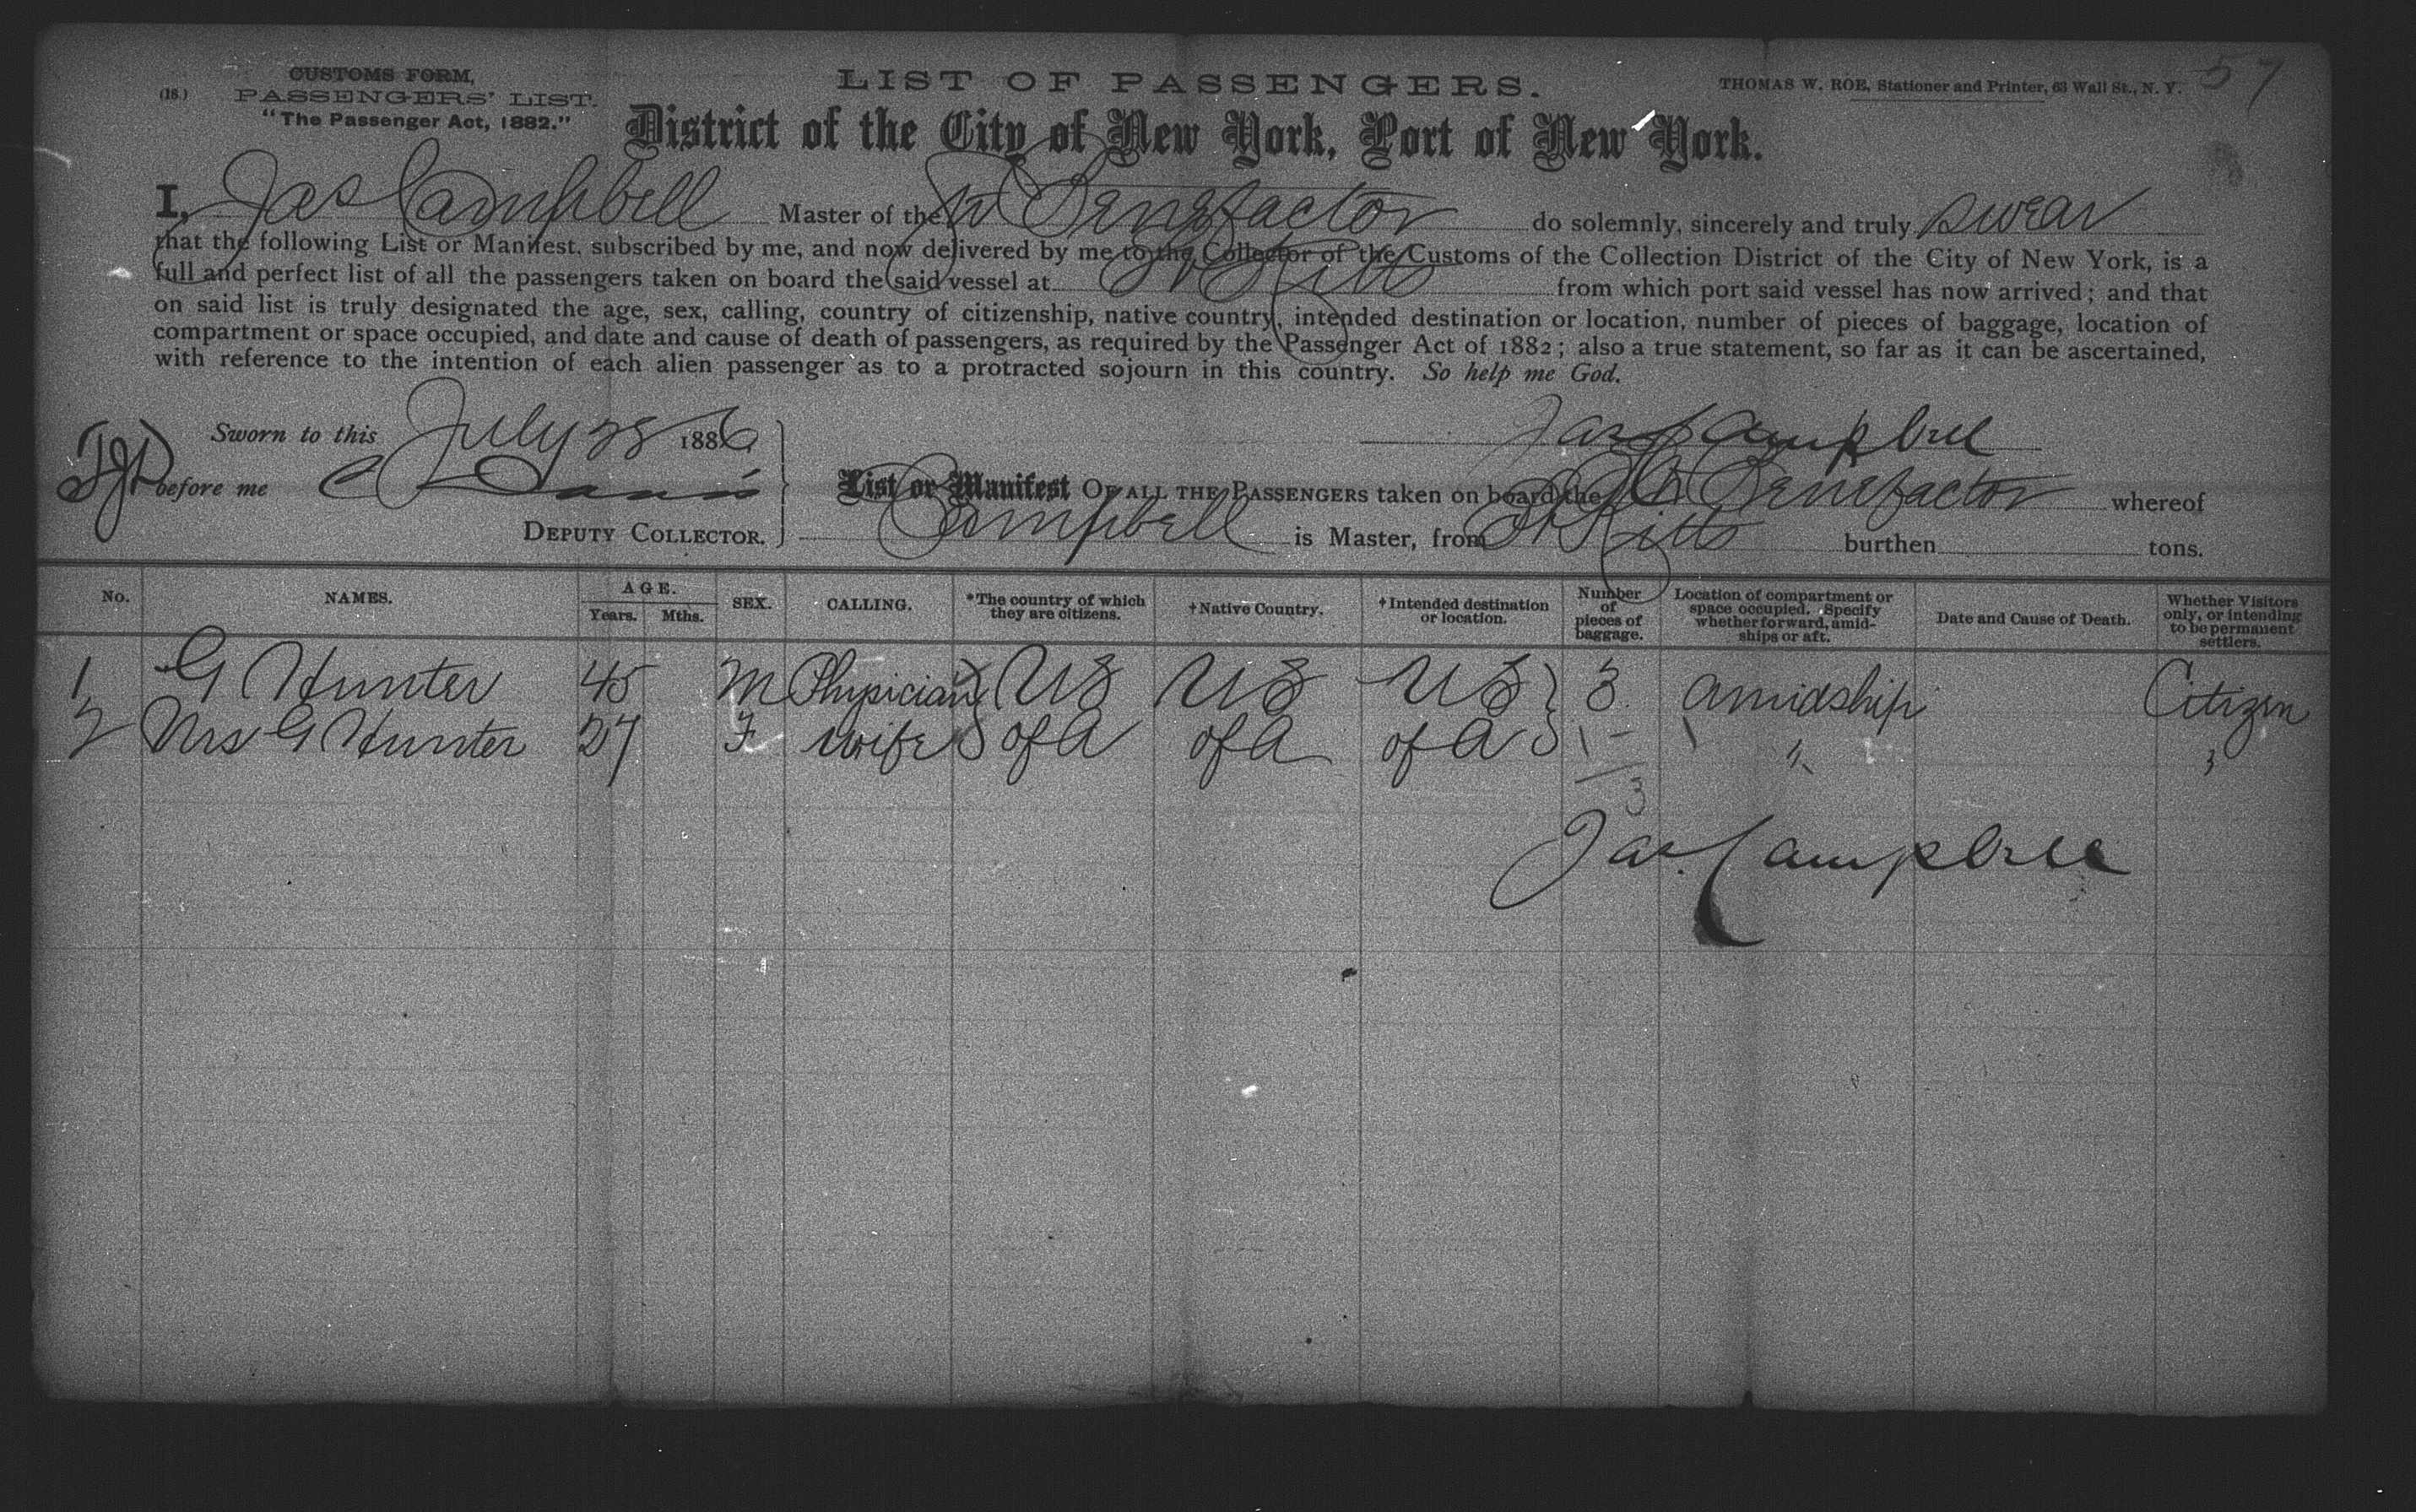 57
CUSTOMS FORM,
(18.) PASSENGERS' LIST.
"The Passenger Act, 1882."
LIST OF PASSENGERS.
THOMAS W. ROE, Stationer and Printer, 63 Wall St., N. Y.
District of the City of New York, Port of New York.
I, Jas Campbell Master of the Benefactor do solemnly, sincerely and truly swear
that the following List or Manifest, subscribed by me, and now delivered by me to the Collector of the Customs of the Collection District of the City of New York, is a
full and perfect list of all the passengers taken on board the said vessel at St Kitts from which port said vessel has now arrived; and that
on said list is truly designated the age, sex, calling, country of citizenship, native country, intended destination or location, number of pieces of baggage, location of
compartment or space occupied, and date and cause of death of passengers, as required by the Passenger Act of 1882; also a true statement, so far as it can be ascertained,
with reference to the intention of each alien passenger as to a protracted sojourn in this country. So help me God.
Sworn to this July 28 1886
Jas Campbell
before me
List or Manifest OF ALL THE PASSENGERS taken on board the Benefactor whereof
DEPUTY COLLECTOR.
Campbell is Master, from St Kitts burthen tons.
No. NAMES. AGE. Years. Mths. SEX. CALLING. *The country of which they are citizens. †Native Country. †Intended destination or location. Number of pieces of baggage. Location of compartment or space occupied. Specify whether forward, amidships or aft. Date and Cause of Death. Whether Visitors only, or intending to be permanent settlers.
1 G Hunter 45 M Physician US US US 3 amidship Citizen
2 Mrs G Hunter 27 F wife of A of A of A " "
3
Jas. Campbell